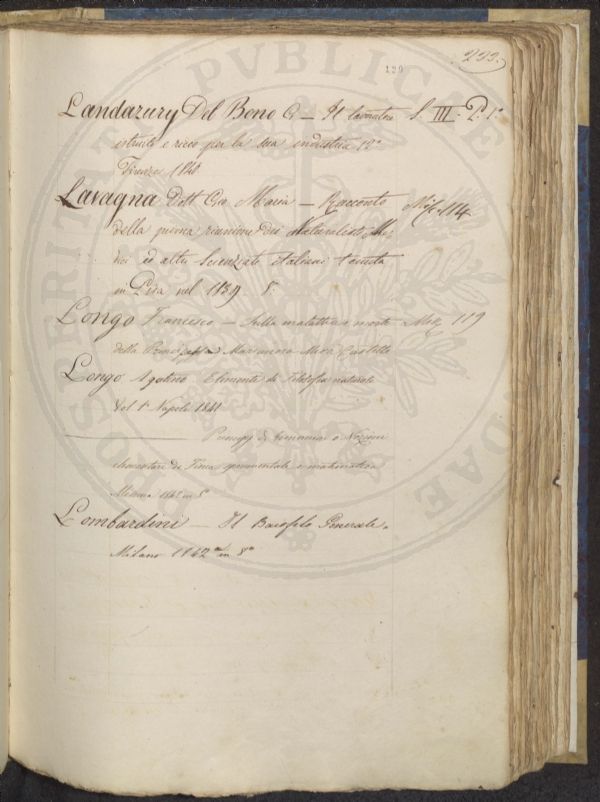 233.
129
Landazury Del Bono G — Il lavoratore S. III. P. 1ª
istruito e ricco per la sua industria 12º
Firenze 1848
Lavagna Dott Gio Maria — Racconto Mis. 114
della prima riunione dei Naturalisti, Me-
dici ed altri Scienziati Italiani tenuta
in Pisa nel 1839 8º
Longo Francesco — Sulla malattia e morte Mis. 119
della Principessa Marianna
Longo Agatino Elementi di Filosofia naturale
Vol 1º Napoli 1841
— Principj di o Nozioni
di Fisica sperimentale e matematica
Messina 1842 in 8º
Lombardini — Il Generale.
Milano 1842 in 8º
PUBLICAE
PROSPERITATI